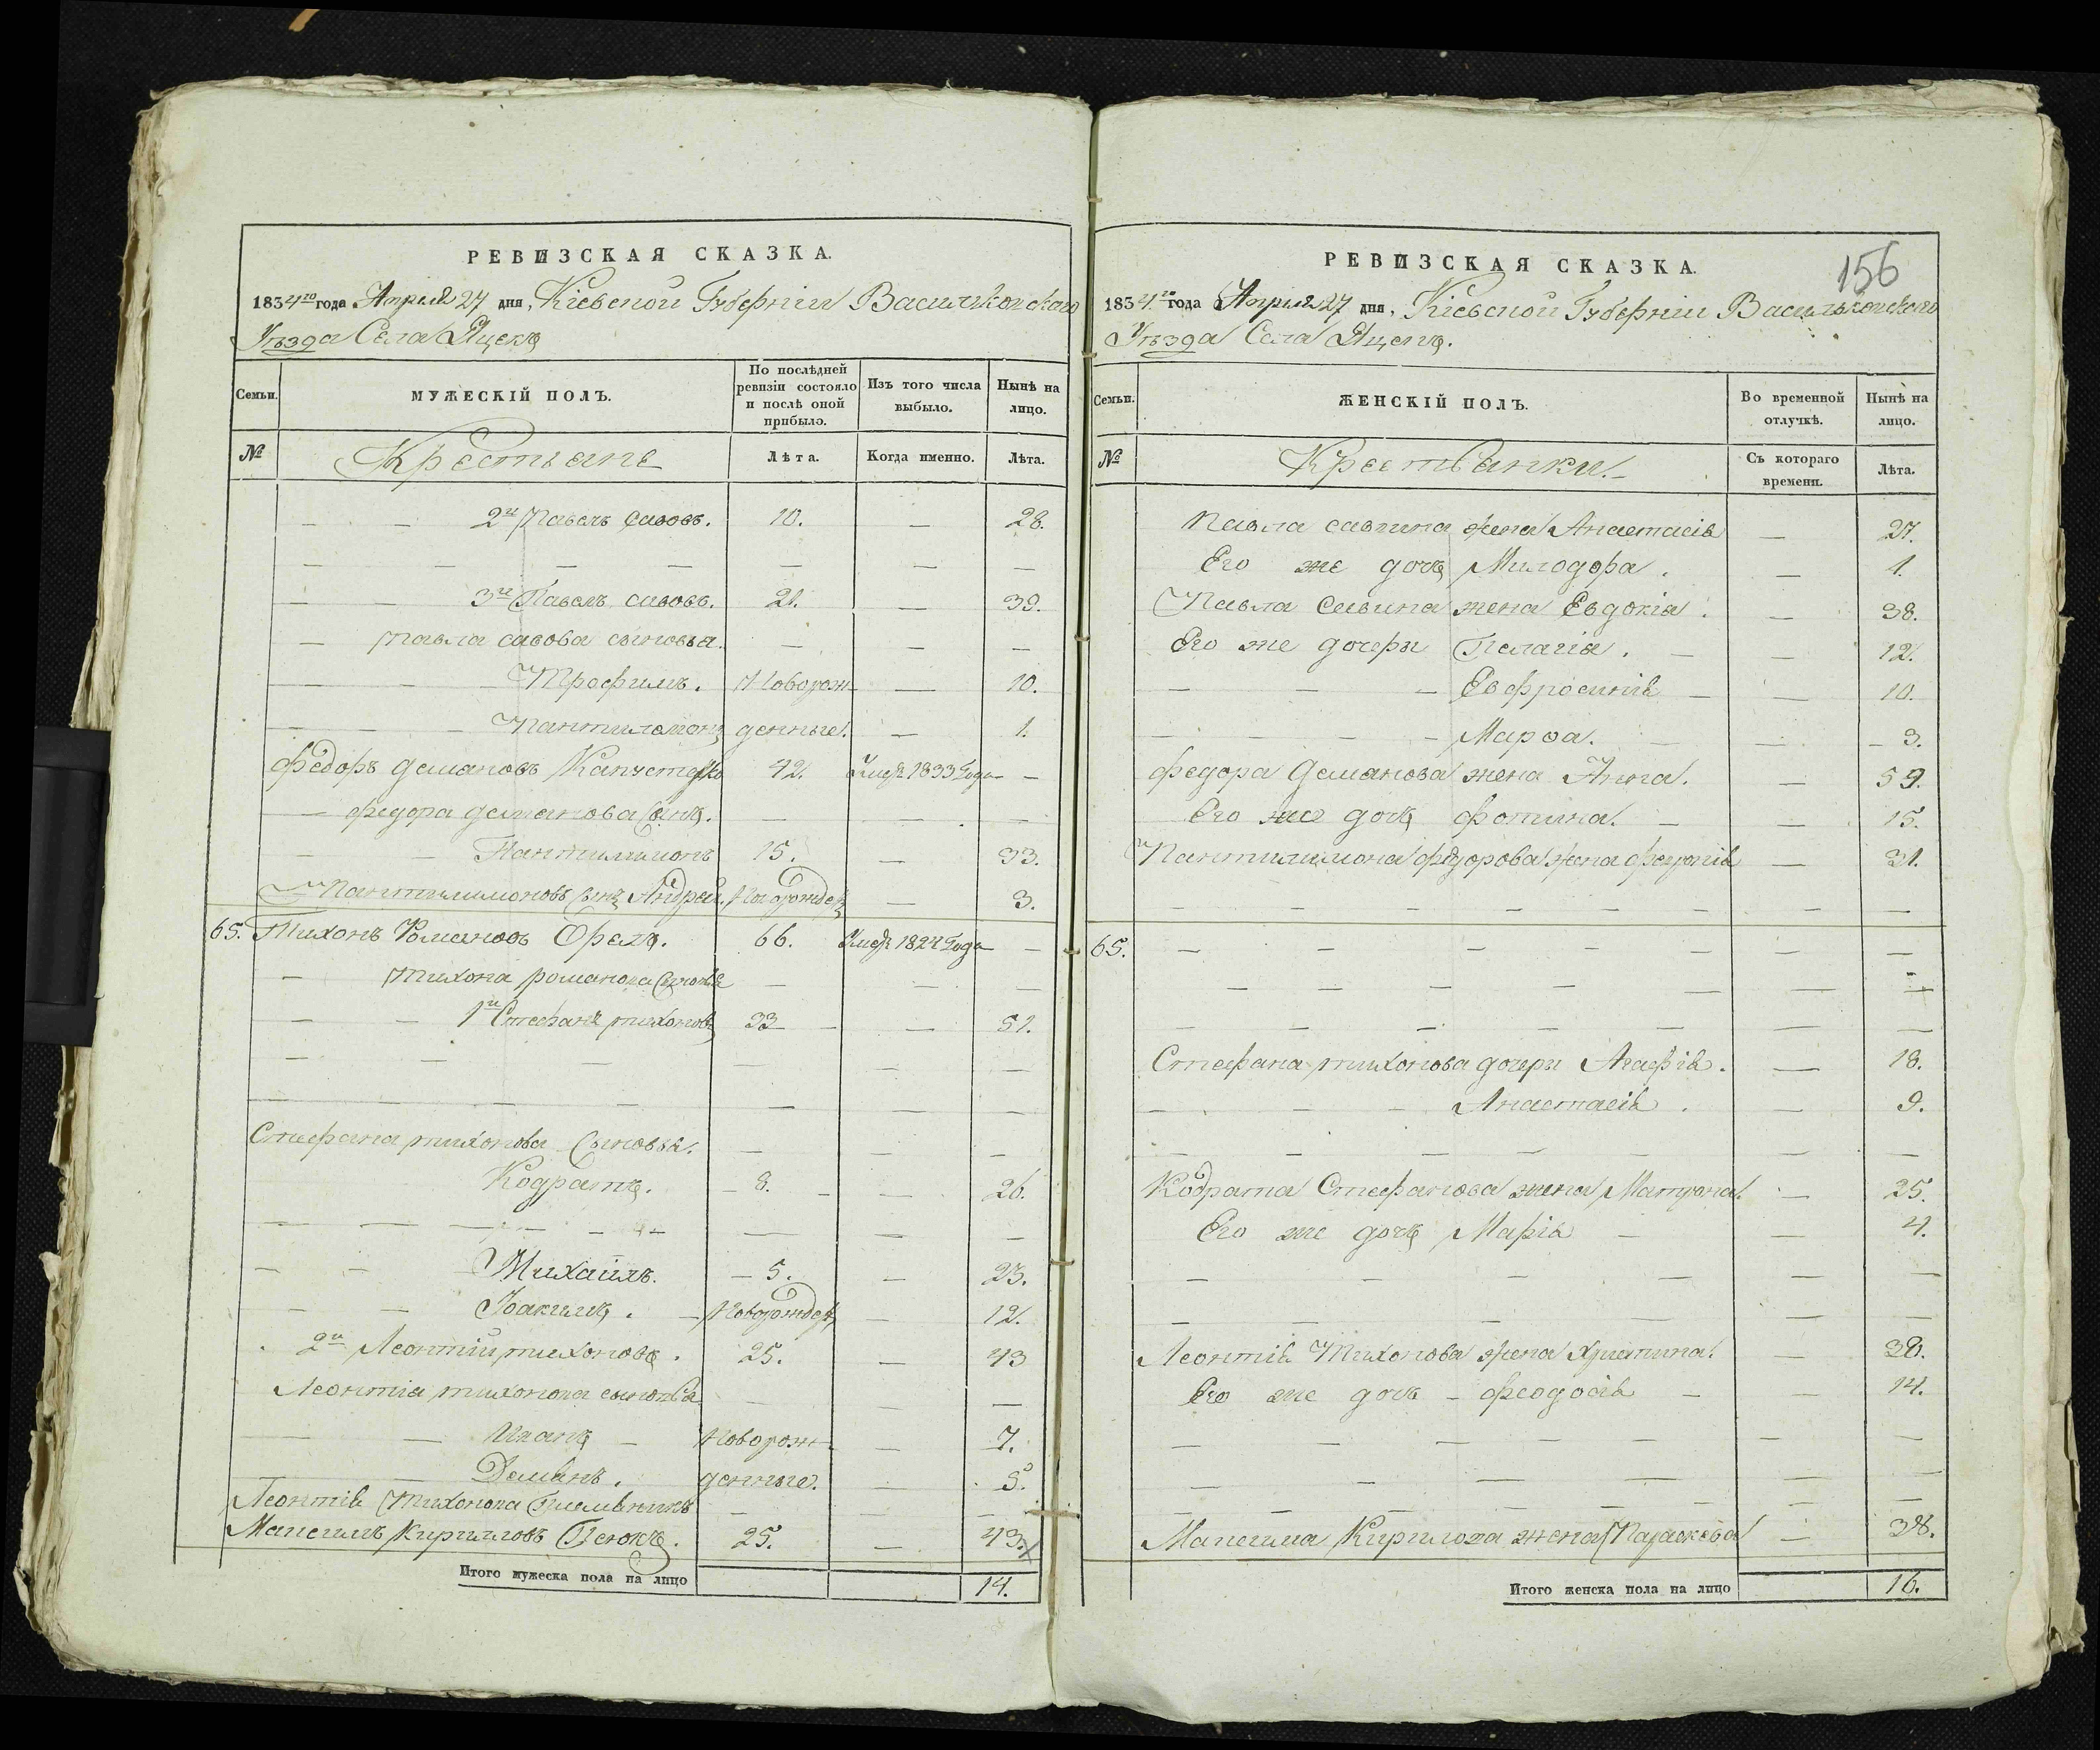 РЕВИЗСКАЯ СКАЗКА.
1834го года Апреля 27 дня, Кіевской Губерніи Васильковскаго
Уѣзда Села Яцекъ
Семьи.
МУЖЕСКІЙ ПОЛЪ.
По послѣдней ревизіи состояло и послѣ оной прибыло.
Изъ того числа выбыло.
Нынѣ на лицо.
№
Крестьяне
Лѣта.
Когда именно.
Лѣта.
— — 2й Павелъ савовъ. 10. — 28.
— — — — — — —
— — 3й Павелъ савовъ. 21. — 39.
— Павла савова сыновья. — — —
— — — Трофимъ. Новорож — 10.
— — — Пантилимонъ денные. — 1.
Федоръ демановъ Капустенко 42. Умеръ 1833 Года —
— федора деманова сынъ. — — —
— — Пантилимонъ 15. — 33.
— Пантилимоновъ сынъ Андрей. Новорожден — 3.
65. Тихонъ Романовъ Орелъ. 66. Умеръ 1824 Года —
— Тихона романова сыновья — — —
— — 1й Стефанъ тихоновъ 33 — — 51.
— — — — — —
— — — — — — —
Стефана тихонова Сыновья. — — —
Кодратъ. — 8. — — 26.
— — — — — — — — —
— — Михаилъ. — 5. — 23.
— — Іоакимъ. — Новорожден — 12.
2й Леонтій тихоновъ. 25. — 43
Леонтія тихонова сыновья — — —
— — Иванъ — Новорож — 7.
— Демянъ. денные. — 5.
Леонтія Тихонова Племянникъ — — —
Максимъ Кириловъ 25. — 43.
Итого мужеска пола на лицо 14.
156
РЕВИЗСКАЯ СКАЗКА.
1834го года Апреля 27 дня, Кіевской Губерніи Васильковскаго
Уѣзда Села Яцекъ.
Семьи.
ЖЕНСКІЙ ПОЛЪ.
Во временной отлучкѣ.
Нынѣ на лицо.
№
Крестьянки.
Съ котораго времени.
Лѣта.
Павла саввина жена Анастасія — 27.
Его же дочь Милодора. — 1.
Павла Саввина жена Евдокія. — 38.
Его же дочери Пелагія. — — 12.
— — — Евфросинія — — 10.
— — — — Марѳа. — — 3.
федора Деманова жена Анна. — 59.
Его же дочь фотина. — — 15.
Пантилимона федорова жена — 31.
— — — — — — — —
65. — — — — — — —
— — — — — — —
— — — — — — —
Стефана тихонова дочери Агафія. — 18.
— — — Анастасія. — 9.
— — — — — — —
Кодрата Стефанова жена Матрона. — 25.
Его же дочь Марія — — 4.
— — — — — —
— — — — — —
Леонтія Тихонова жена Христина. — 38.
Его же дочь — феодосія — — 14.
— — — — — — —
— — — — — —
— — — — — — —
Максима Кирилова жена Параскева — 38.
Итого женска пола на лицо 16.